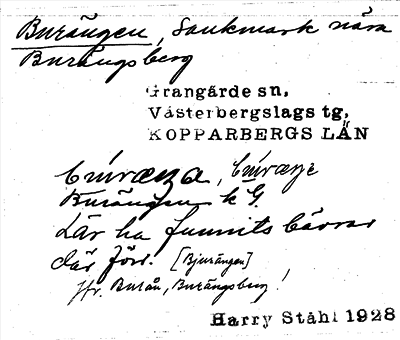 Burängen, Sankmark nära
Burängsberg
Grangärde sn,
Västerbergslags tg,
KOPPARBERGS LÄN
Burängen k G.
Lär ha funnits bävrar
där förr. [Bjurängen]
Jfr. Burån, Burängsberg!
Harry Ståhl 1928